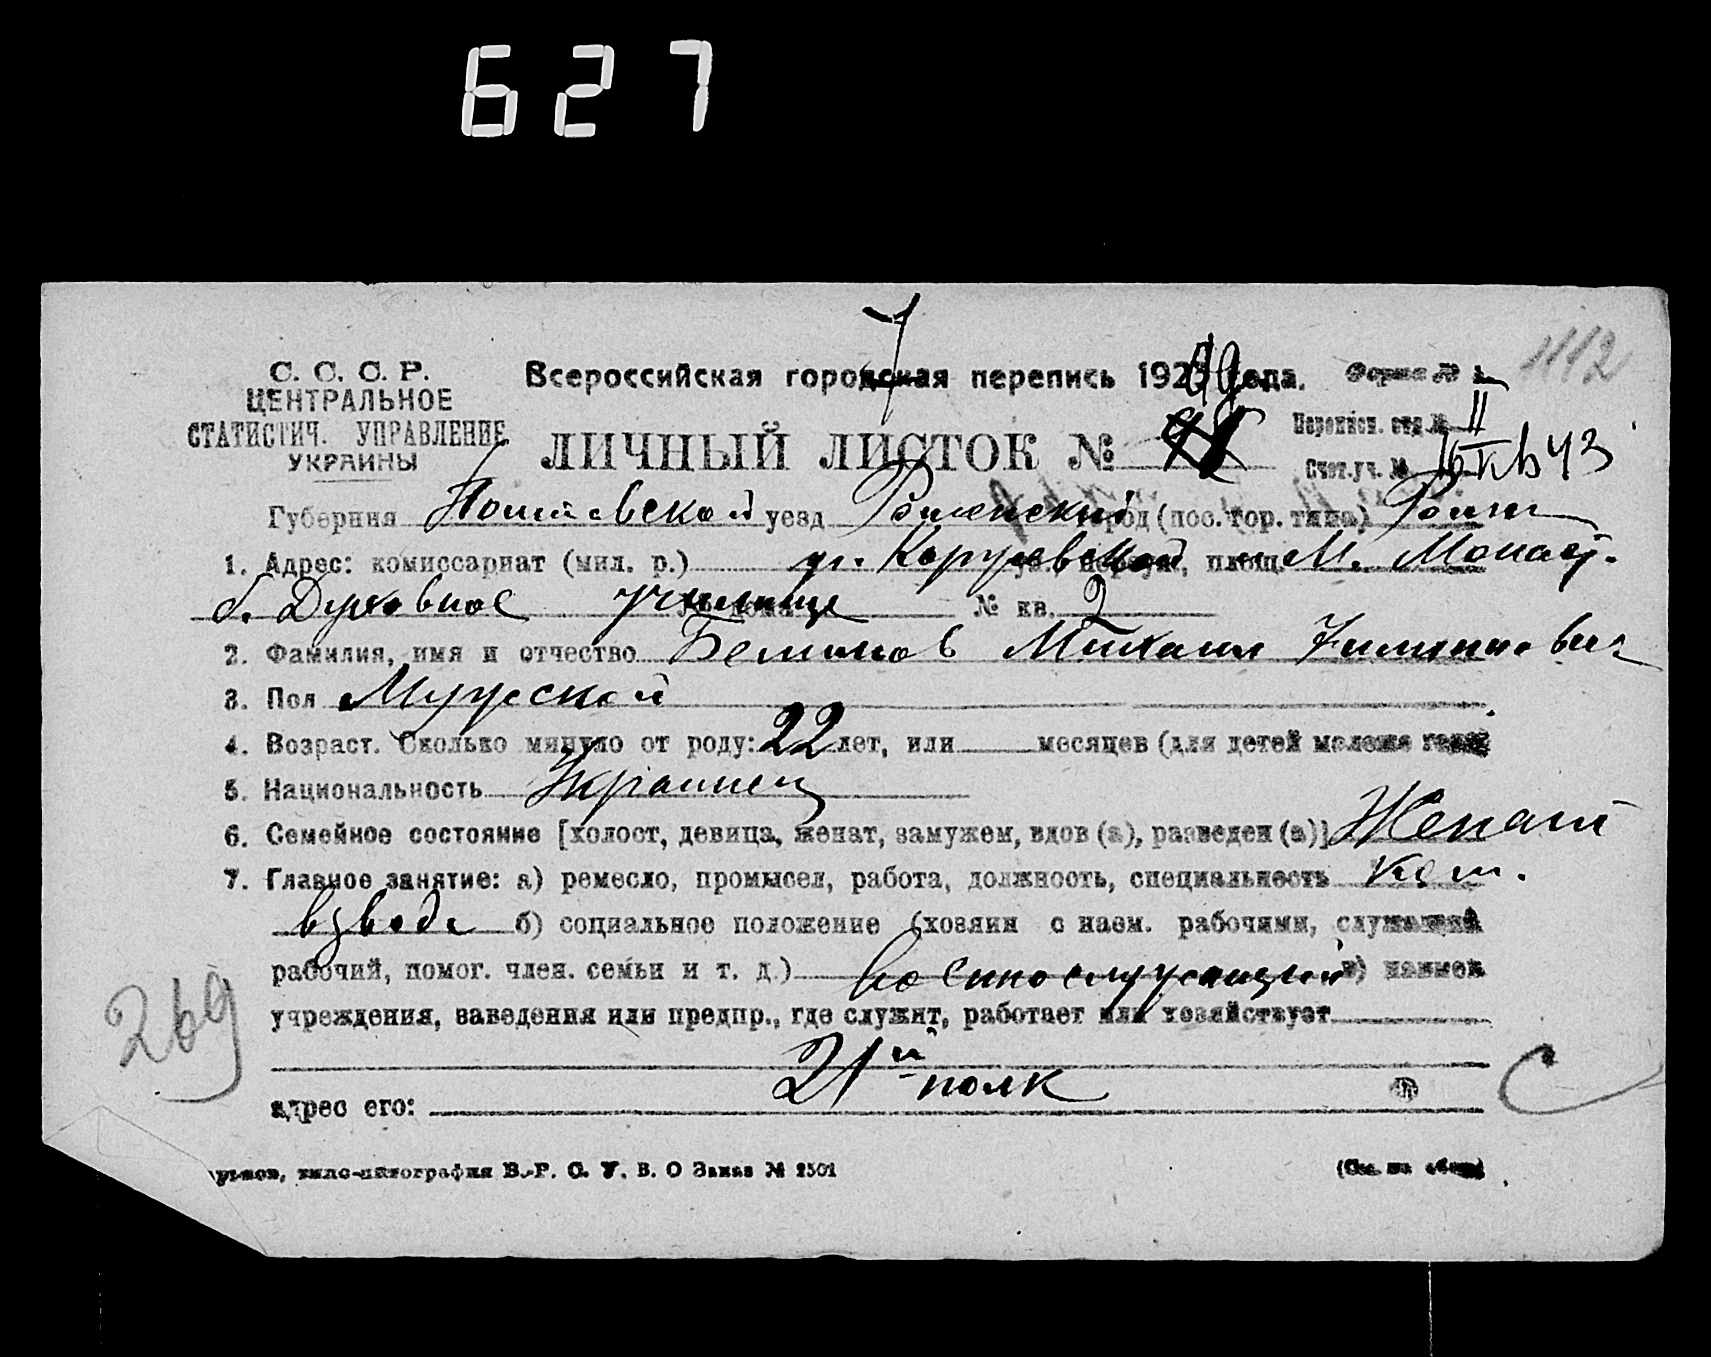 627
7
1112
С. С. С. Р.
ЦЕНТРАЛЬНОЕ
СТАТИСТИЧ. УПРАВЛЕНИЕ
УКРАИНЫ
Всероссийская городская перепись 192 года. Форма №
ЛИЧНЫЙ ЛИСТОК №
Переписн. отд. № II
Счет. уч. № 43
Губерния Полтавской уезд Роменский город (пос. гор. типа) Ромны
1. Адрес: комиссариат (мил. р.) площ. М. Монаст.
б. Духовное училище № кв. 2
2. Фамилия, имя и отчество Михаил
3. Пол Мужской
4. Возраст. Сколько минуло от роду: 22 лет, или месяцев (для детей моложе года)
5. Национальность Украинец
6. Семейное состояние [холост, девица, женат, замужем, вдов (а), разведен (а)] Женат
7. Главное занятие: а) ремесло, промысел, работа, должность, специальность Ком.
взвода б) социальное положение (хозяин с наем. рабочими, служащий
рабочий, помог. член. семьи и т. д.) военнослужащий в) наимен.
учреждения, заведения или предпр., где служит, работает или хозяйствует
21й полк
адрес его:
269
С
В.-Р. С. У. В. О Заказ № 2501
(См. на обор.)